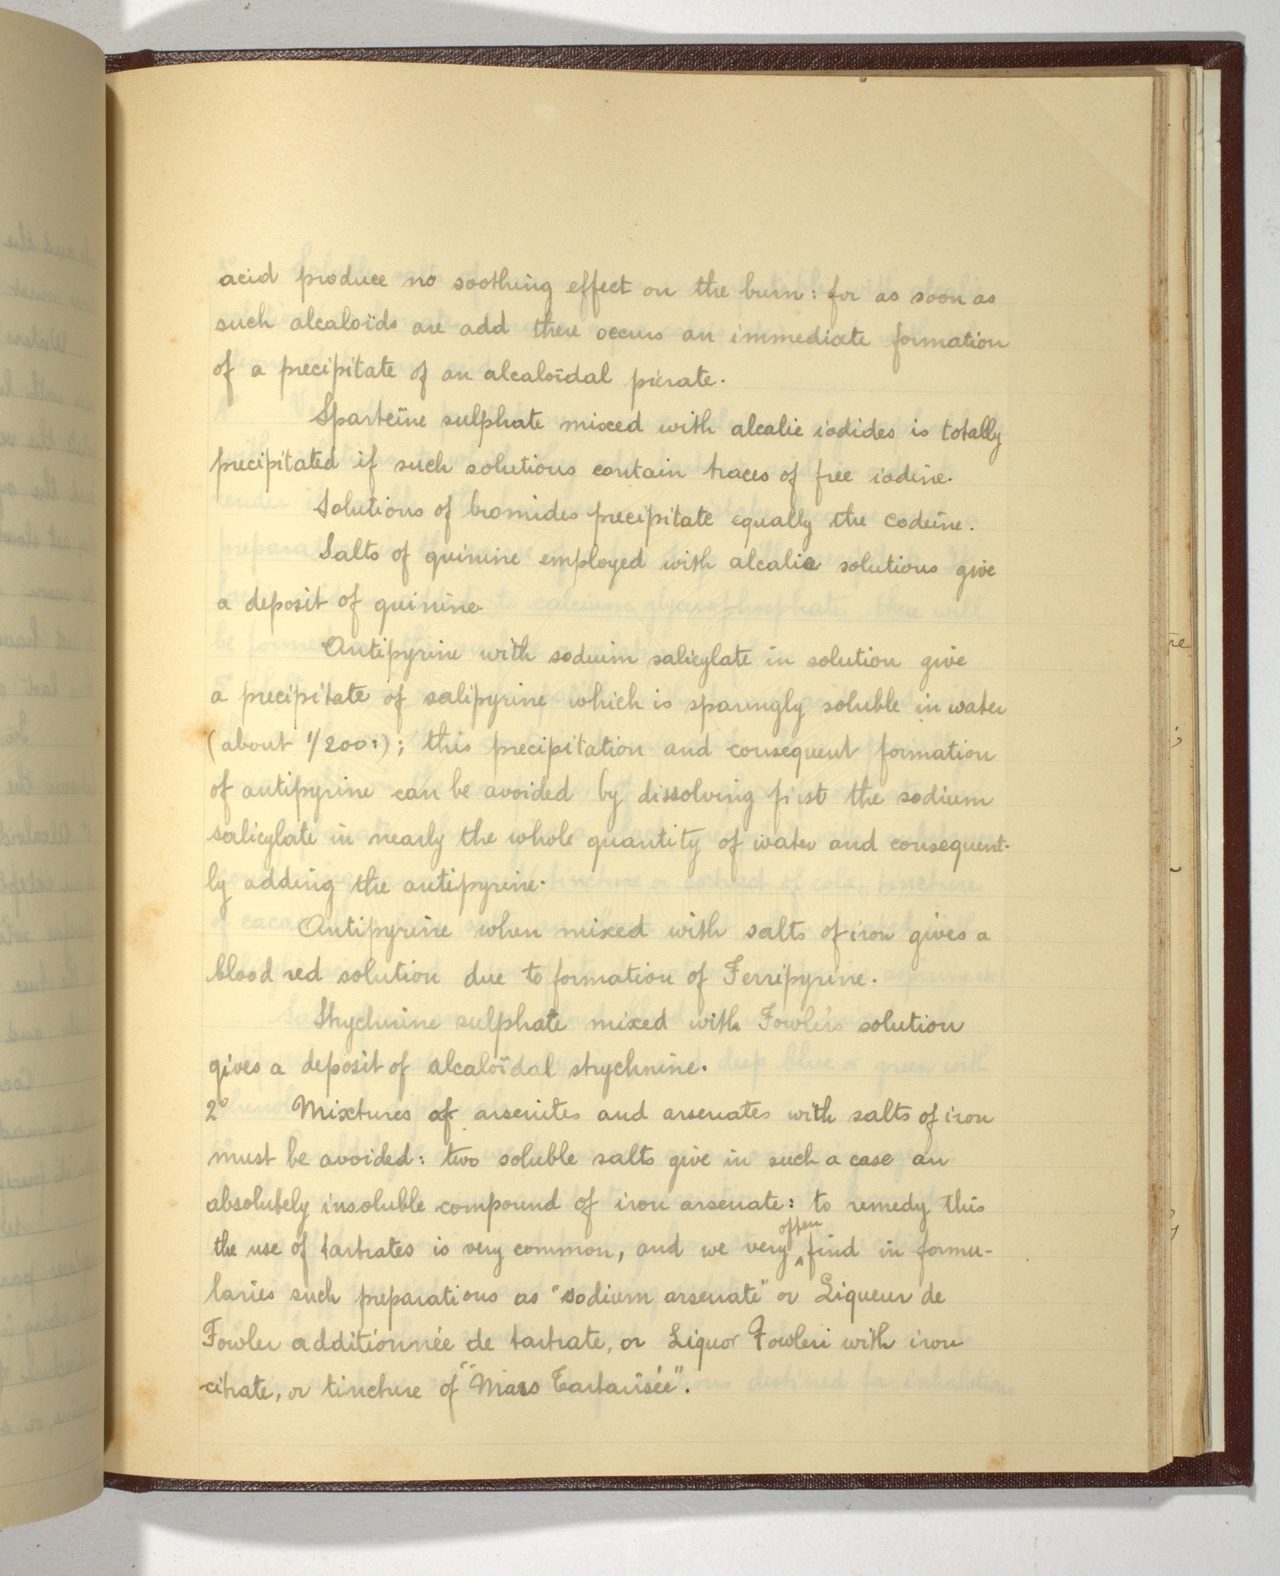 acid produce no soothing effect on the burn: for as soon as
such alcaloïds are add there occurs an immediate formation
of a precipitate of an alcaloïdal picrate.
Sparteïne sulphate mixed with alcalic iodides is totally
precipitated if such solutions contain traces of free iodine.
Solutions of bromides precipitate equally the codeïne.
Salts of quinine employed with alcalic solutions give
a deposit of quinine
Antipyrine with sodium salicylate in solution give
a precipitate of salipyrine which is sparingly soluble in water
(about 1/200:); this precipitation and consequent formation
of antipyrine can be avoided by dissolving first the sodium
salicylate in nearly the whole quantity of water and consequent-
ly adding the antipyrine.
Antipyrine when mixed with salts of iron gives a
blood red solution due to formation of Ferripyrine.
Strychnine sulphate mixed with Fowler's solution
gives a deposit of alcaloïdal strychnine.
2° Mixtures of arsenites and arsenates with salts of iron
must be avoided: two soluble salts give in such a case an
absolutely insoluble compound of iron arsenate: to remedy this
the use of tartrates is very common, and we very often find in formu-
laries such preparations as "sodium arsenate" or Liqueur de
Fowler additionnée de tartrate, or Liquor Fowleri with iron
citrate, or tincture of "Mars Tartarisée".